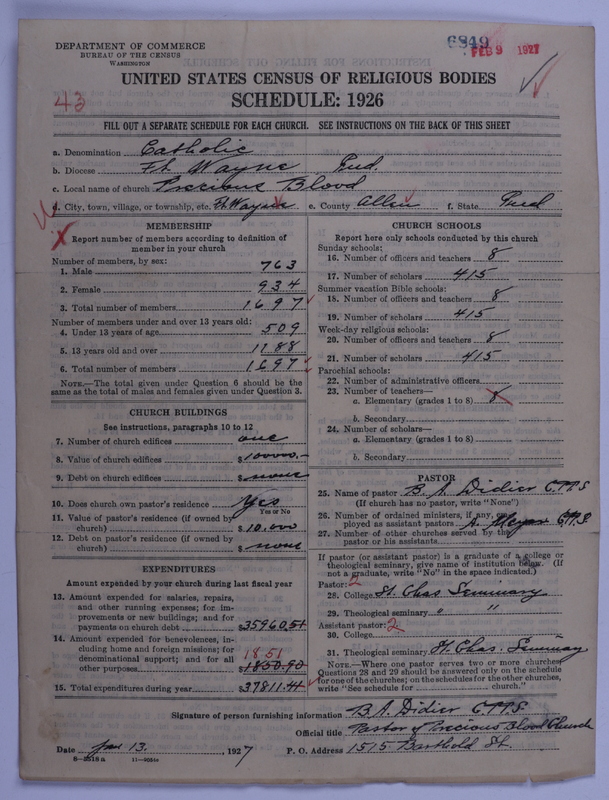 DEPARTMENT OF COMMERCE
BUREAU OF THE CENSUS
WASHINGTON
6849
FEB 9 1927
UNITED STATES CENSUS OF RELIGIOUS BODIES
43
SCHEDULE: 1926
FILL OUT A SEPARATE SCHEDULE FOR EACH CHURCH. SEE INSTRUCTIONS ON THE BACK OF THIS SHEET
a. Denomination Catholic
b. Diocese Ft. Wayne Ind.
c. Local name of church Precious Blood
d. City, town, village, or township, etc. Ft. Wayne e. County Allen f. State Ind
MEMBERSHIP
Report number of members according to definition of member in your church
Number of members, by sex:
1. Male 763
2. Female 934
3. Total number of members 1697
Number of members under and over 13 years old:
4. Under 13 years of age 509
5. 13 years old and over 1188
6. Total number of members 1697
NOTE.—The total given under Question 6 should be
same as the total of males and females given under Question 3.
CHURCH BUILDINGS
See instructions, paragraphs 10 to 12
7. Number of church edifices one
8. Value of church edifices $100000.-
9. Debt on church edifices $ none
10. Does church own pastor's residence Yes
Yes or No
11. Value of pastor's residence (if owned by
church) $10.000
12. Debt on pastor's residence (if owned by
church) $ none
EXPENDITURES
Amount expended by your church during last fiscal year
13. Amount expended for salaries, repairs,
and other running expenses; for im-
provements or new buildings; and for
payments on church debt $35960.54
14. Amount expended for benevolences, in-
cluding home and foreign missions; for
denominational support; and for all
1851
other purposes $1850.90
15. Total expenditures during year $37811.44
CHURCH SCHOOLS
Report here only schools conducted by this church
Sunday schools:
16. Number of officers and teachers 8
17. Number of scholars 415
Summer vacation Bible schools:
18. Number of officers and teachers 8
19. Number of scholars 415
Week-day religious schools:
20. Number of officers and teachers 8
21. Number of scholars 415
Parochial schools:
22. Number of administrative officers
23. Number of teachers—
a. Elementary (grades 1 to 8) 8
b. Secondary
24. Number of scholars—
a. Elementary (grades 1 to 8)
b. Secondary
PASTOR
25. Name of pastor B. A. Didier C.PP.S
(If church has no pastor, write "None")
26. Number of ordained ministers, if any, em-
ployed as assistant pastors A. Meyer C.PP.S.
27. Number of other churches served by the
pastor or his assistants
If pastor (or assistant pastor) is a graduate of a college or
theological seminary, give name of institution below. (If
not a graduate, write "No" in the space indicated.)
Pastor: 2
28. College St. Chas Seminary
29. Theological seminary " "
Assistant pastor: 2
30. College
31. Theological seminary St. Chas. Seminary
NOTE.—Where one pastor serves two or more churches
Questions 28 and 29 should be answered only on the schedule
for one of the churches; on the schedules for the other churches,
write "See schedule for church."
Signature of person furnishing information B. A. Didier C.PP.S
Official title Pastor of Precious Blood Church
Date Jan 13. 1927 P. O. Address 1515 Barthold St.
8-5518a